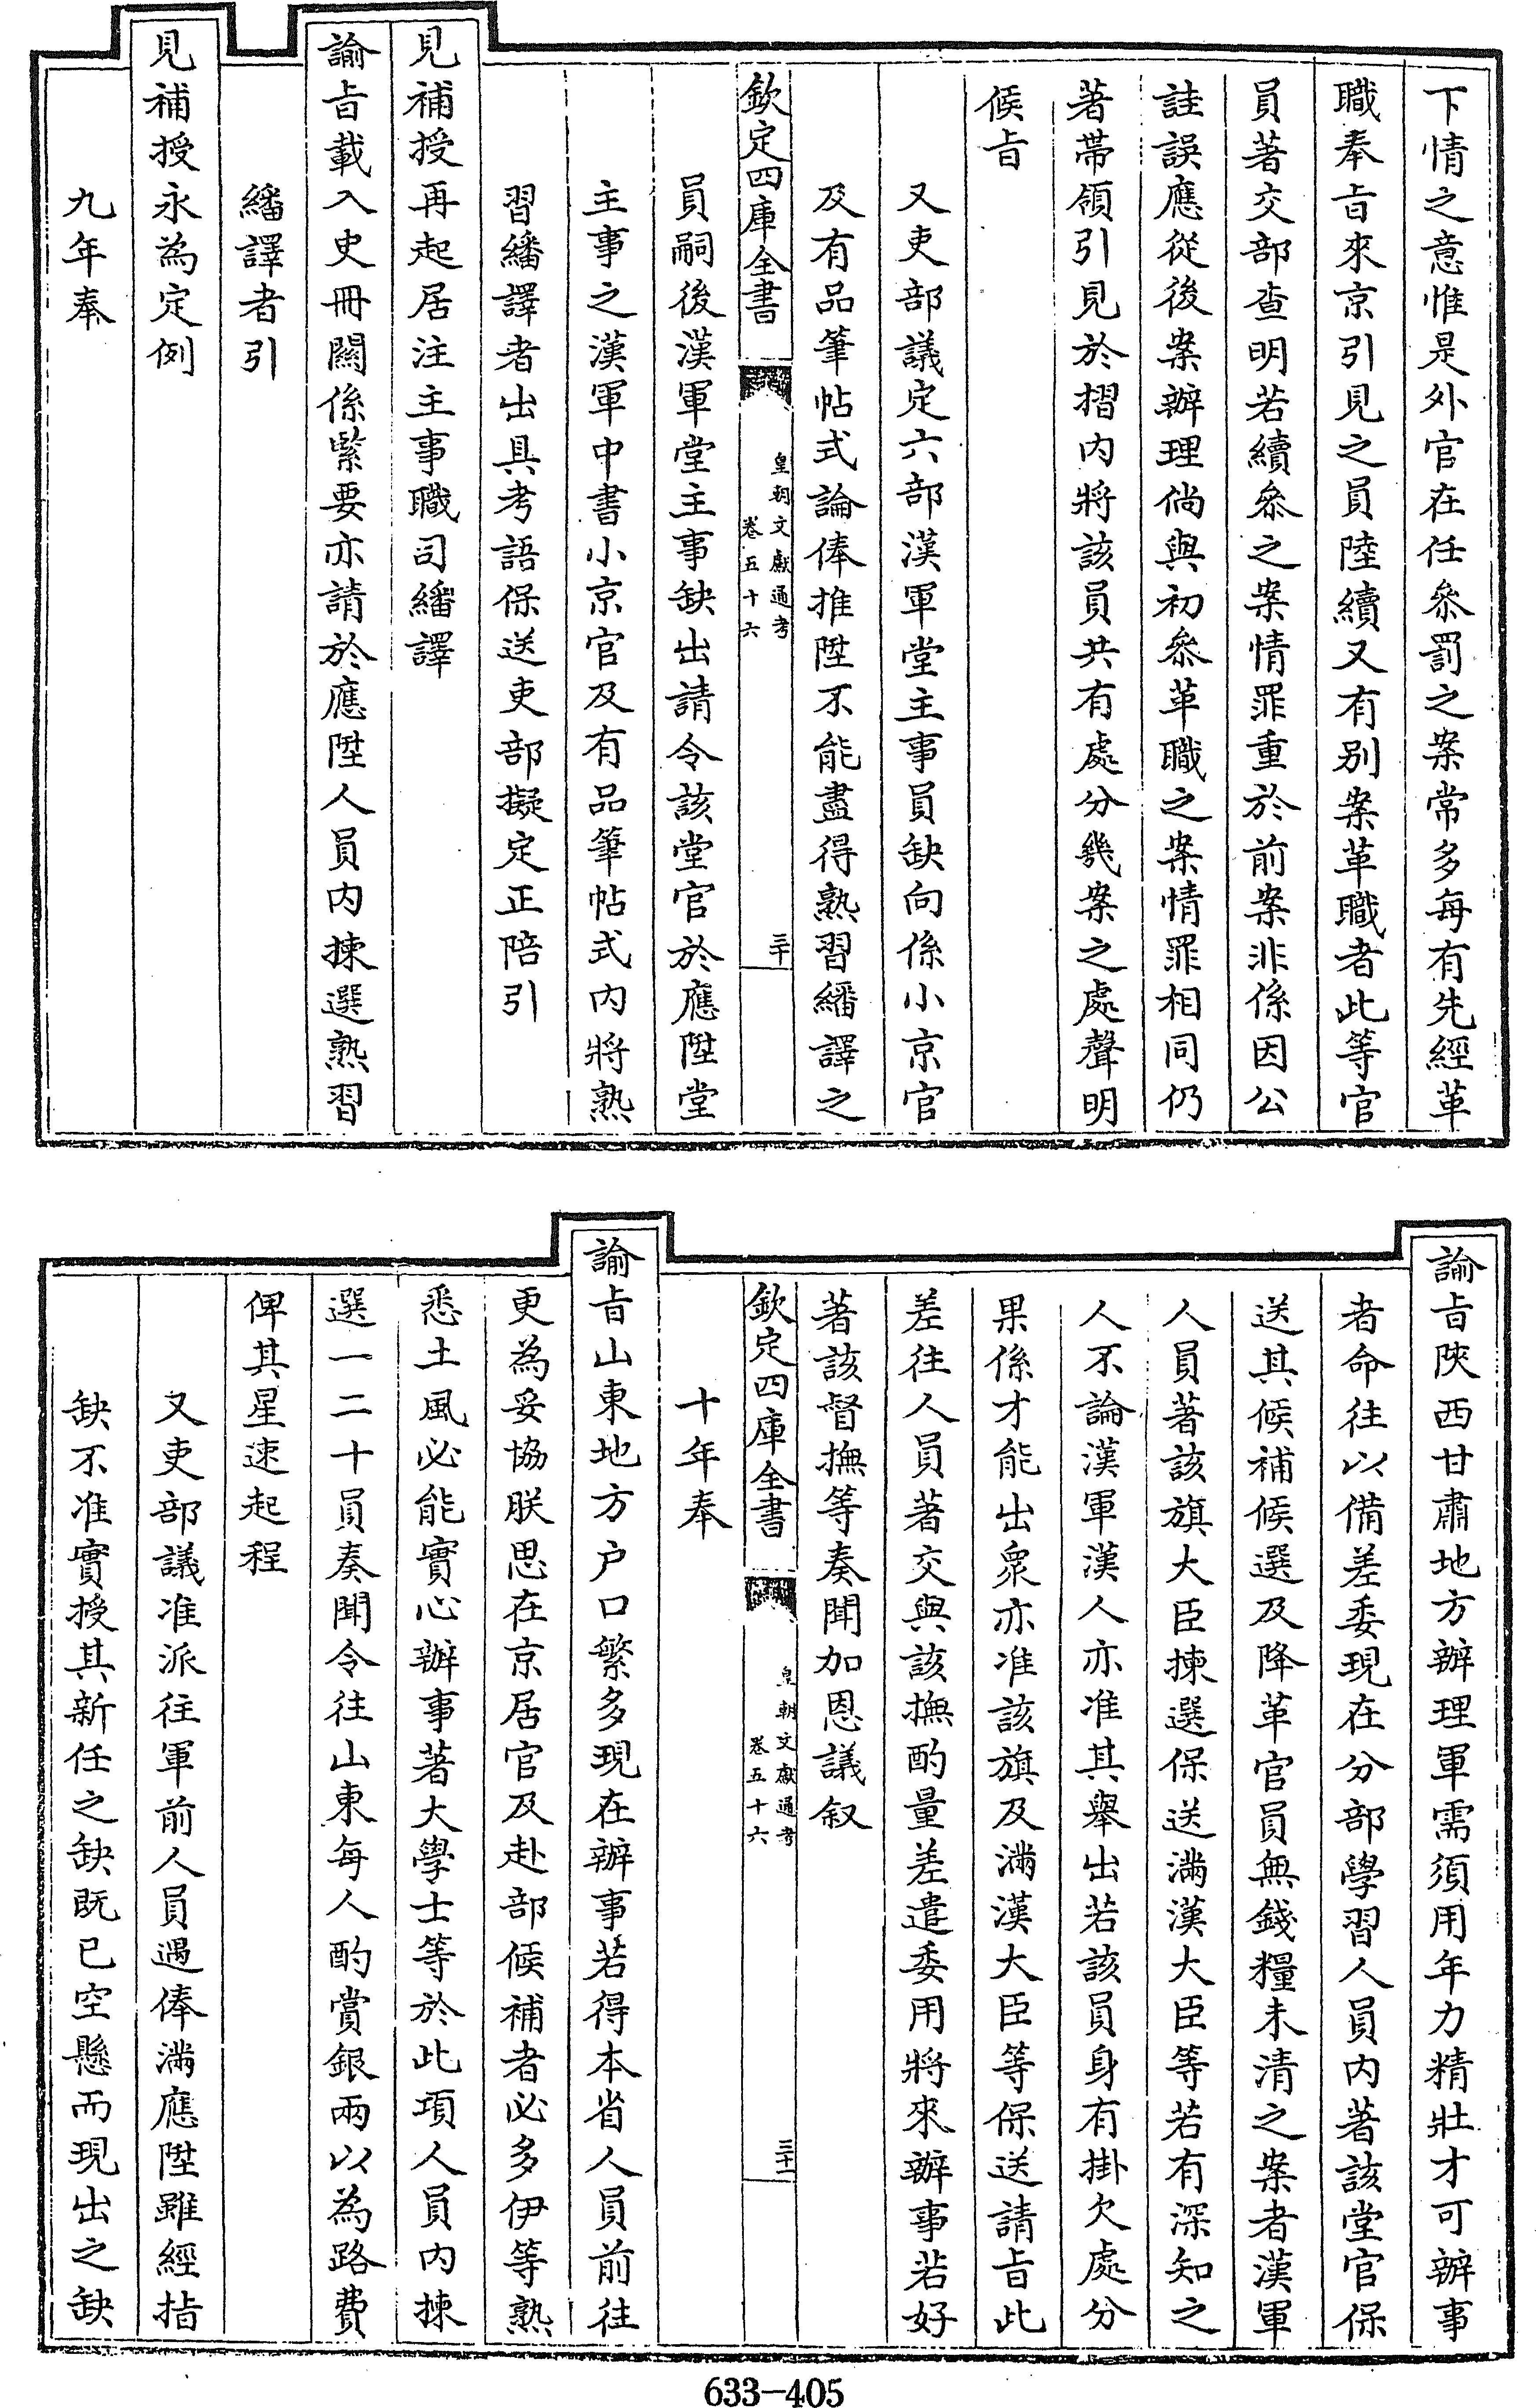 下情之意惟是外官在任叅罰之案常多每有先經革
職奉㫖來京引見之員陸續又有别案革職者此等官
員著交部查明若續叅之案情罪重於前案非係因公
詿誤應從後案辦理倘與初叅革職之案情罪相同仍
著帶領引見於摺内將該員共有處分幾案之處聲明
候㫖
又吏部議定六部漢軍堂主事員缺向係小京官
及有品筆帖式論俸推陞不能盡得熟習繙譯之
欽定四庫全書
皇朝文獻通考
卷五十六
三十
員嗣後漢軍堂主事缺出請令該堂官於應陞堂
主事之漢軍中書小京官及有品筆帖式内將熟
習繙譯者出具考語保送吏部擬定正陪引
見補授再起居注主事職司繙譯
諭㫖載入史冊關係緊要亦請於應陞人員内揀選熟習
繙譯者引
見補授永為定例
九年奉
諭㫖陜西甘肅地方辦理軍需須用年力精壯才可辦事
者命往以備差委現在分部學習人員内著該堂官保
送其候補候選及降革官員無錢糧未清之案者漢軍
人員著該旗大臣揀選保送滿漢大臣等若有深知之
人不論漢軍漢人亦准其舉出若該員身有掛欠處分
果係才能出衆亦准該旗及滿漢大臣等保送請㫖此
差往人員著交與該撫酌量差遣委用將來辦事若好
著該督撫等奏聞加恩議叙
欽定四庫全書
皇朝文獻通考
卷五十六
三十一
十年奉
諭㫖山東地方户口繁多現在辦事若得本省人員前往
更為妥協朕思在京居官及赴部候補者必多伊等熟
悉土風必能實心辦事著大學士等於此項人員内揀
選一二十員奏聞令往山東每人酌賞銀兩以為路費
俾其星速起程
又吏部議准派往軍前人員遇俸滿應陞雖經指
缺不准實授其新任之缺既已空懸而現出之缺
633-405